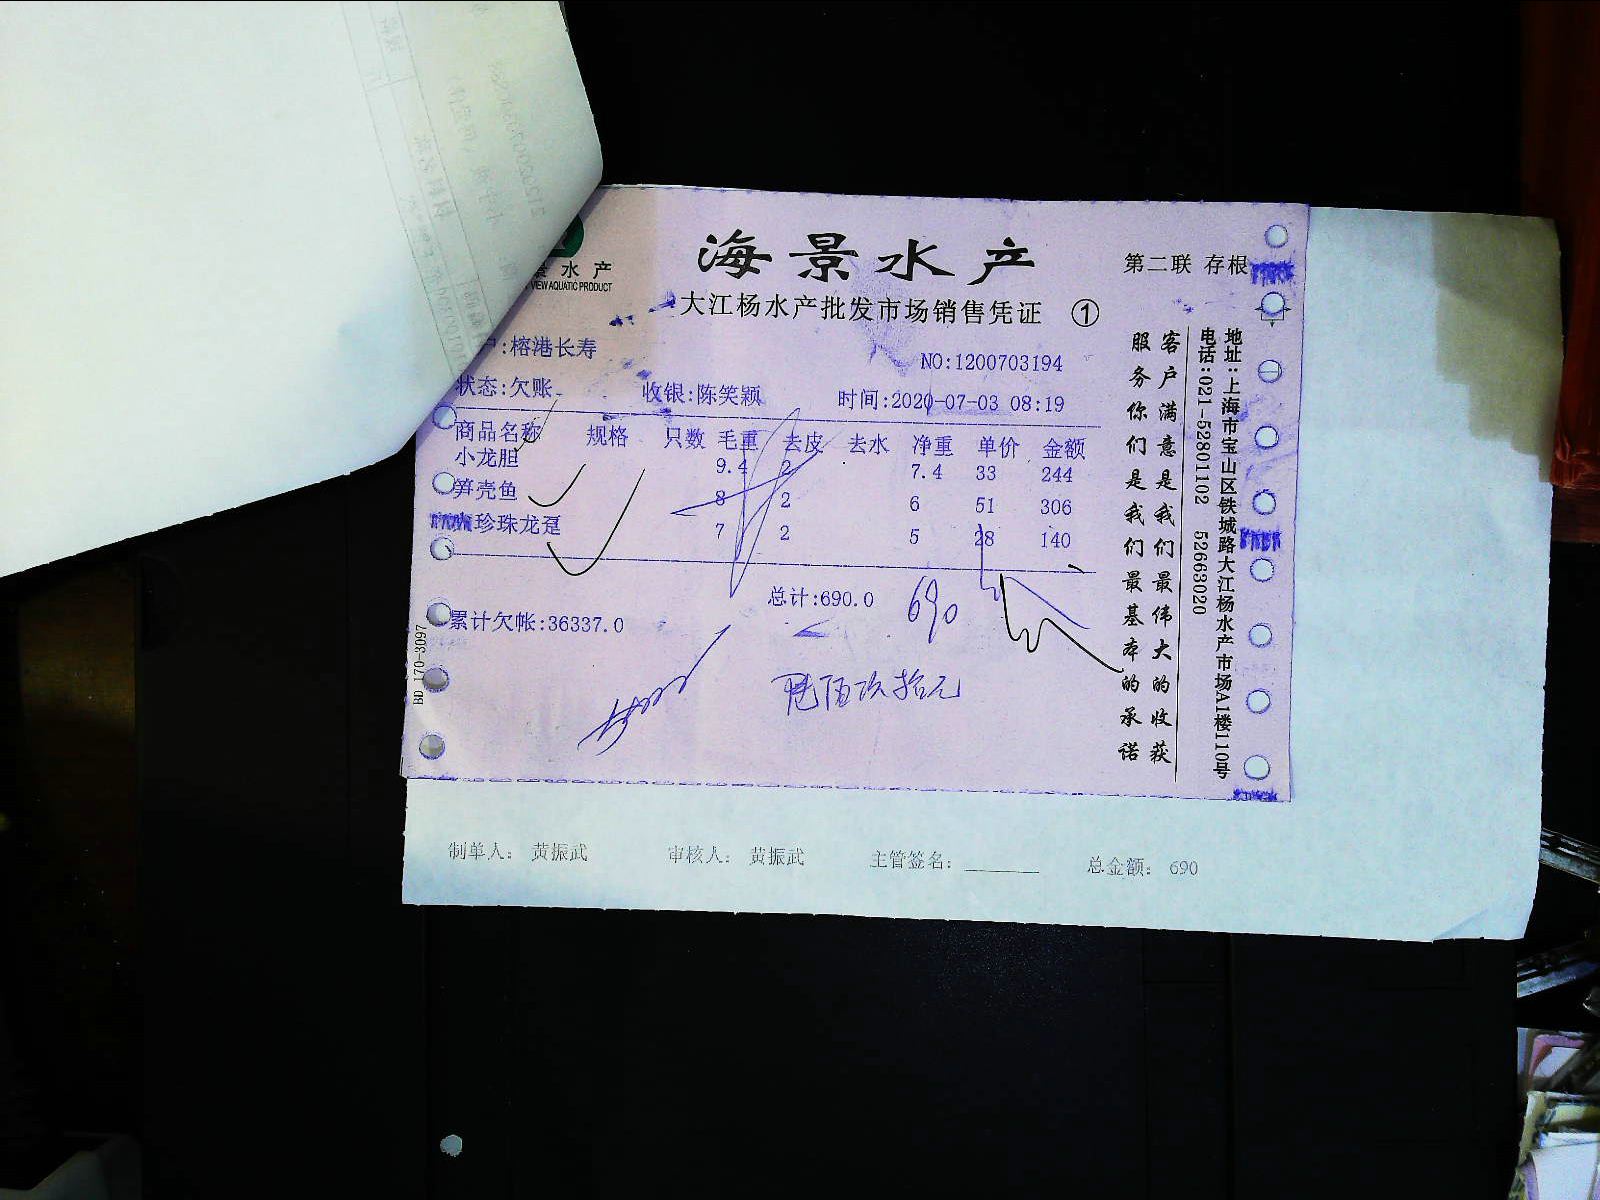 海景水产
第二联 存根
景水产
VIEW AQUATIC PRODUCT
大江杨水产批发市场销售凭证 ①
:榕港长寿
NO:1200703194
状态:欠账 收银:陈笑颖 时间:2020-07-03 08:19
商品名称 规格 只数 毛重 去皮 去水 净重 单价 金额
小龙胆 9.4 2 7.4 33 244
笋壳鱼 8 2 6 51 306
珍珠龙趸 7 2 5 28 140
总计:690.0 690
累计欠帐:36337.0
陆佰玖拾元
BD 170-3097
客户满意是我们最伟大的收获
服务你们是我们最基本的承诺
地址:上海市宝山区铁城路大江杨水产市场A1楼110号
电话:021-52801102 52663020
制单人: 黄振武 审核人: 黄振武 主管签名: 总金额: 690